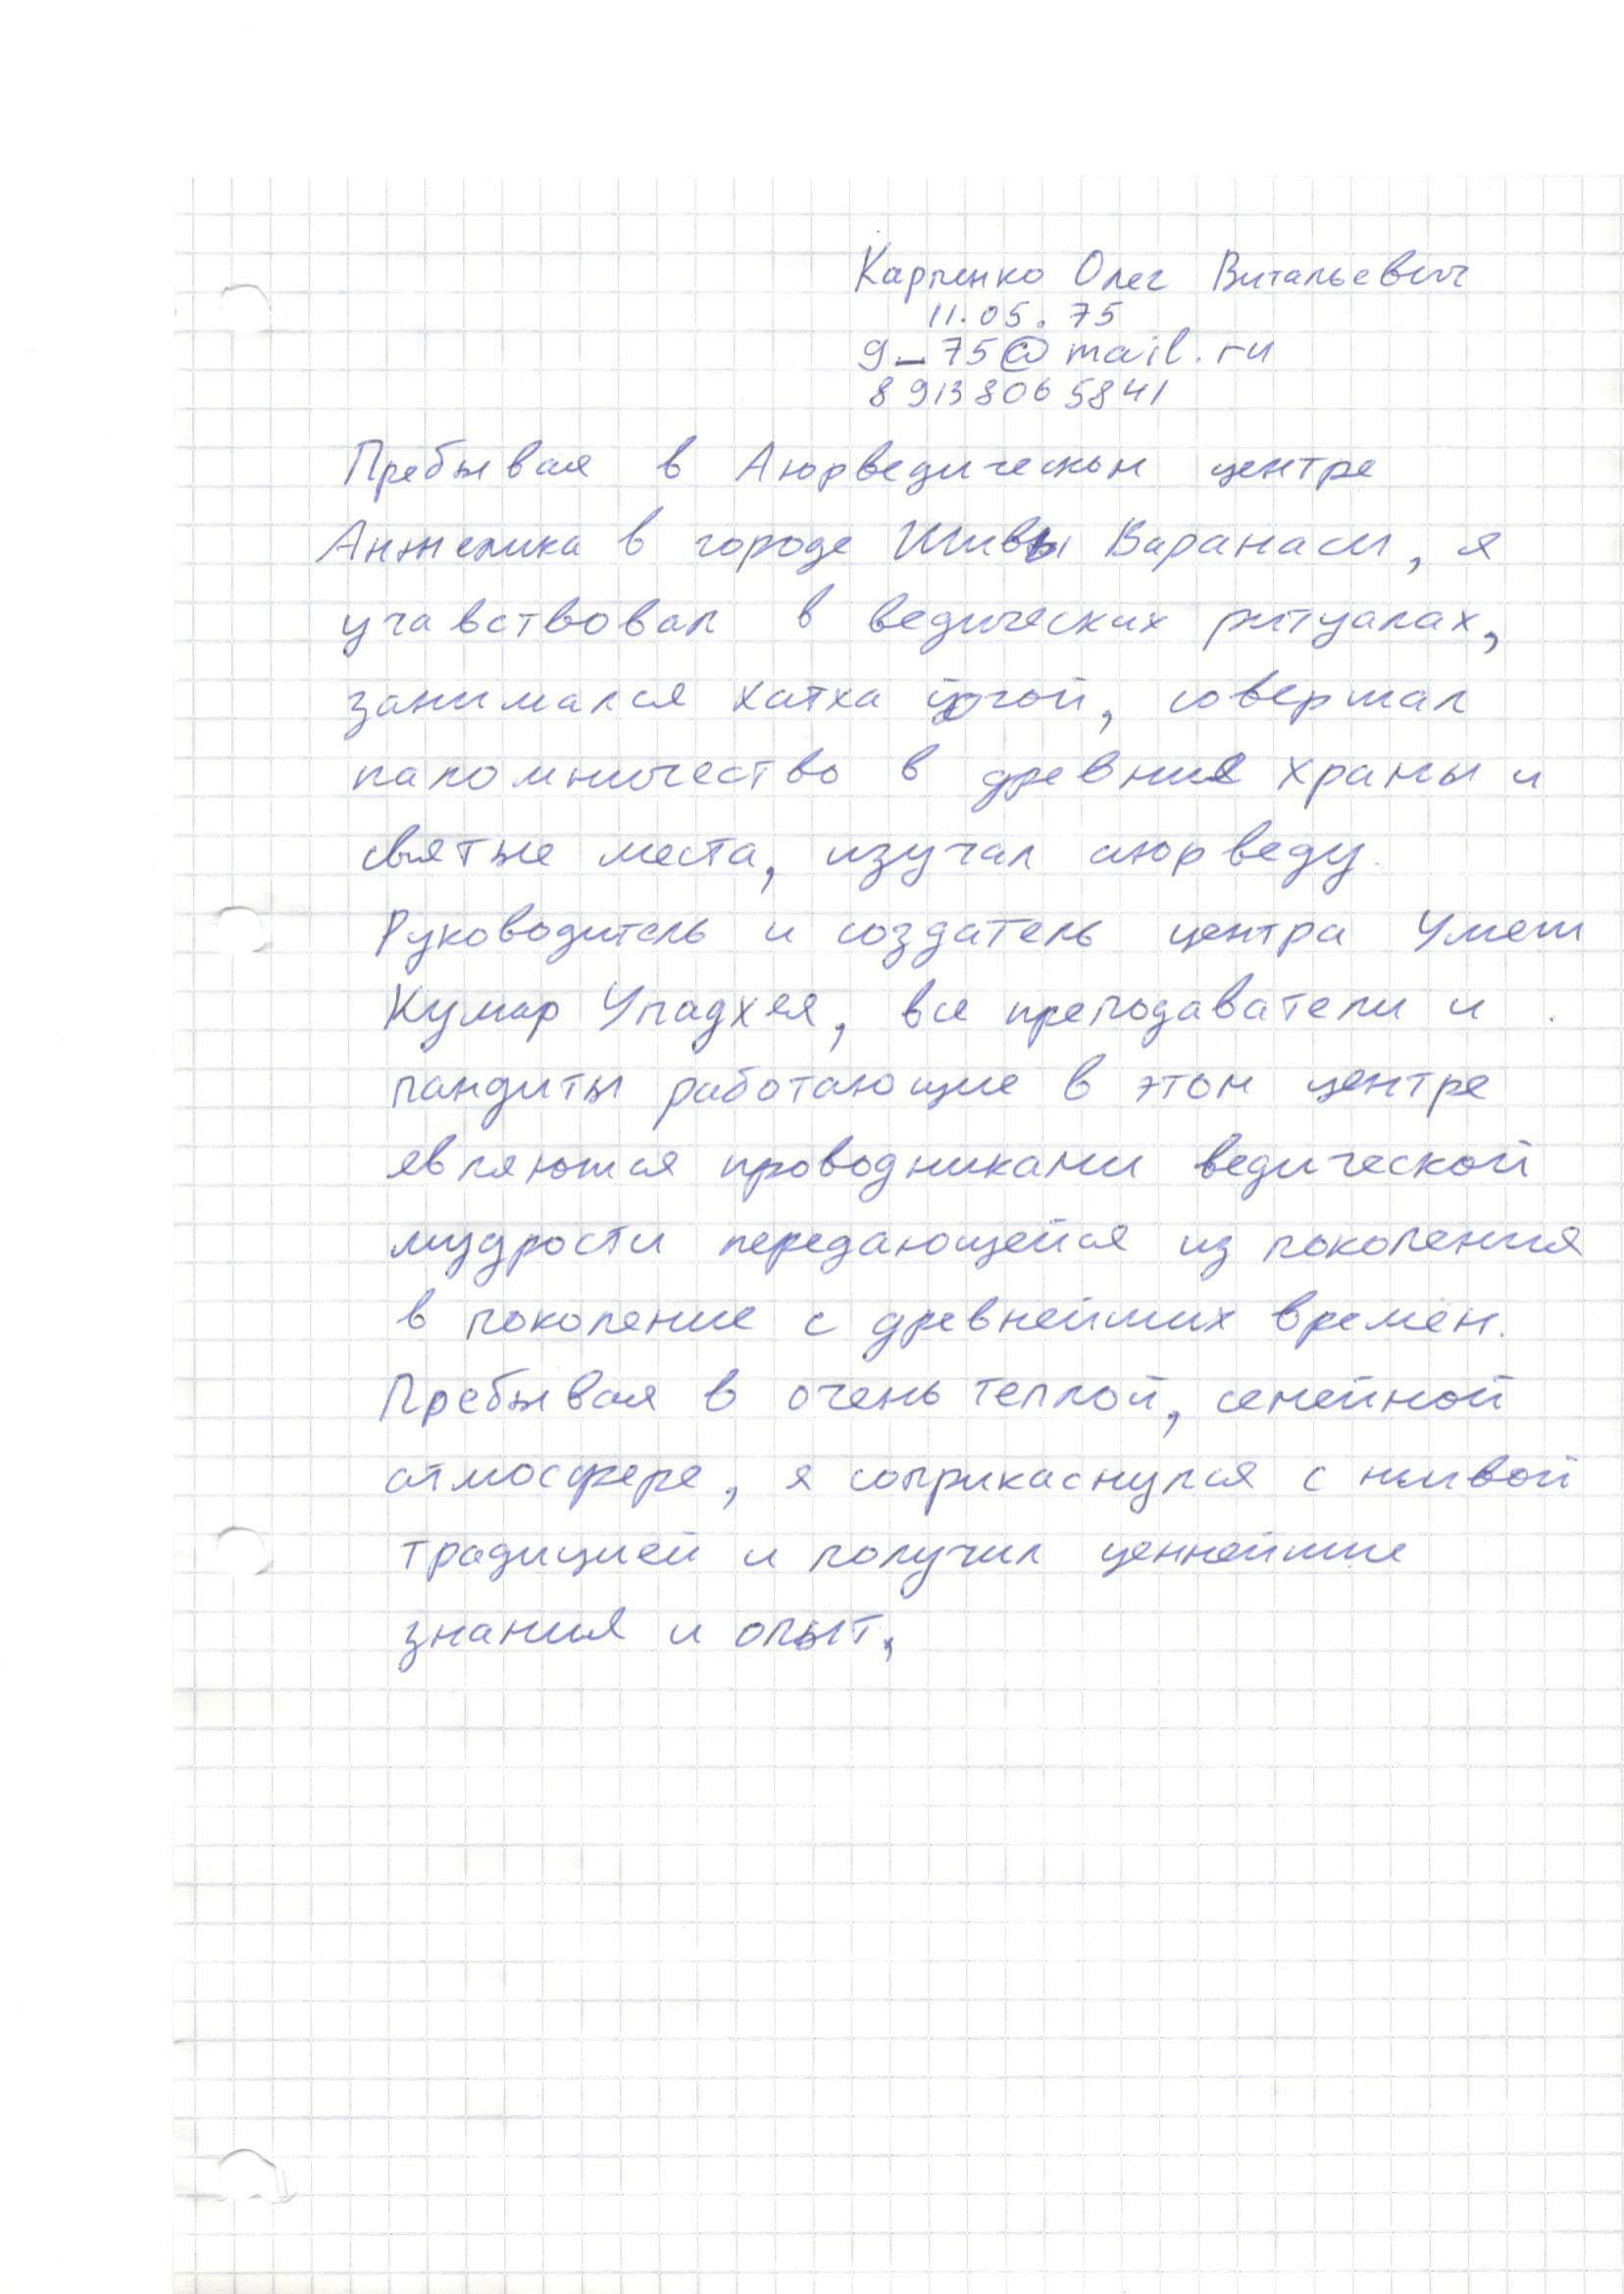 Карпенко Олег Витальевич
11.05.75
9_75@mail.ru
8 913 806 5841
Пребывая в Аюрведическом центре
Анжелика в городе Шивы Варанаси, я
учавствовал в ведических ритуалах,
занимался хатха йогой, совершал
паломничество в древние храмы и
святые места, изучал аюрведу.
Руководитель и создатель центра Умеш
Кумар Упадхея, все преподаватели и
пандиты работающие в этом центре
являются проводниками ведической
мудрости передающейся из поколения
в поколение с древнейших времён.
Пребывая в очень теплой, семейной
атмосфере, я соприкаснулся с живой
традицией и получил ценнейшие
знания и опыт,